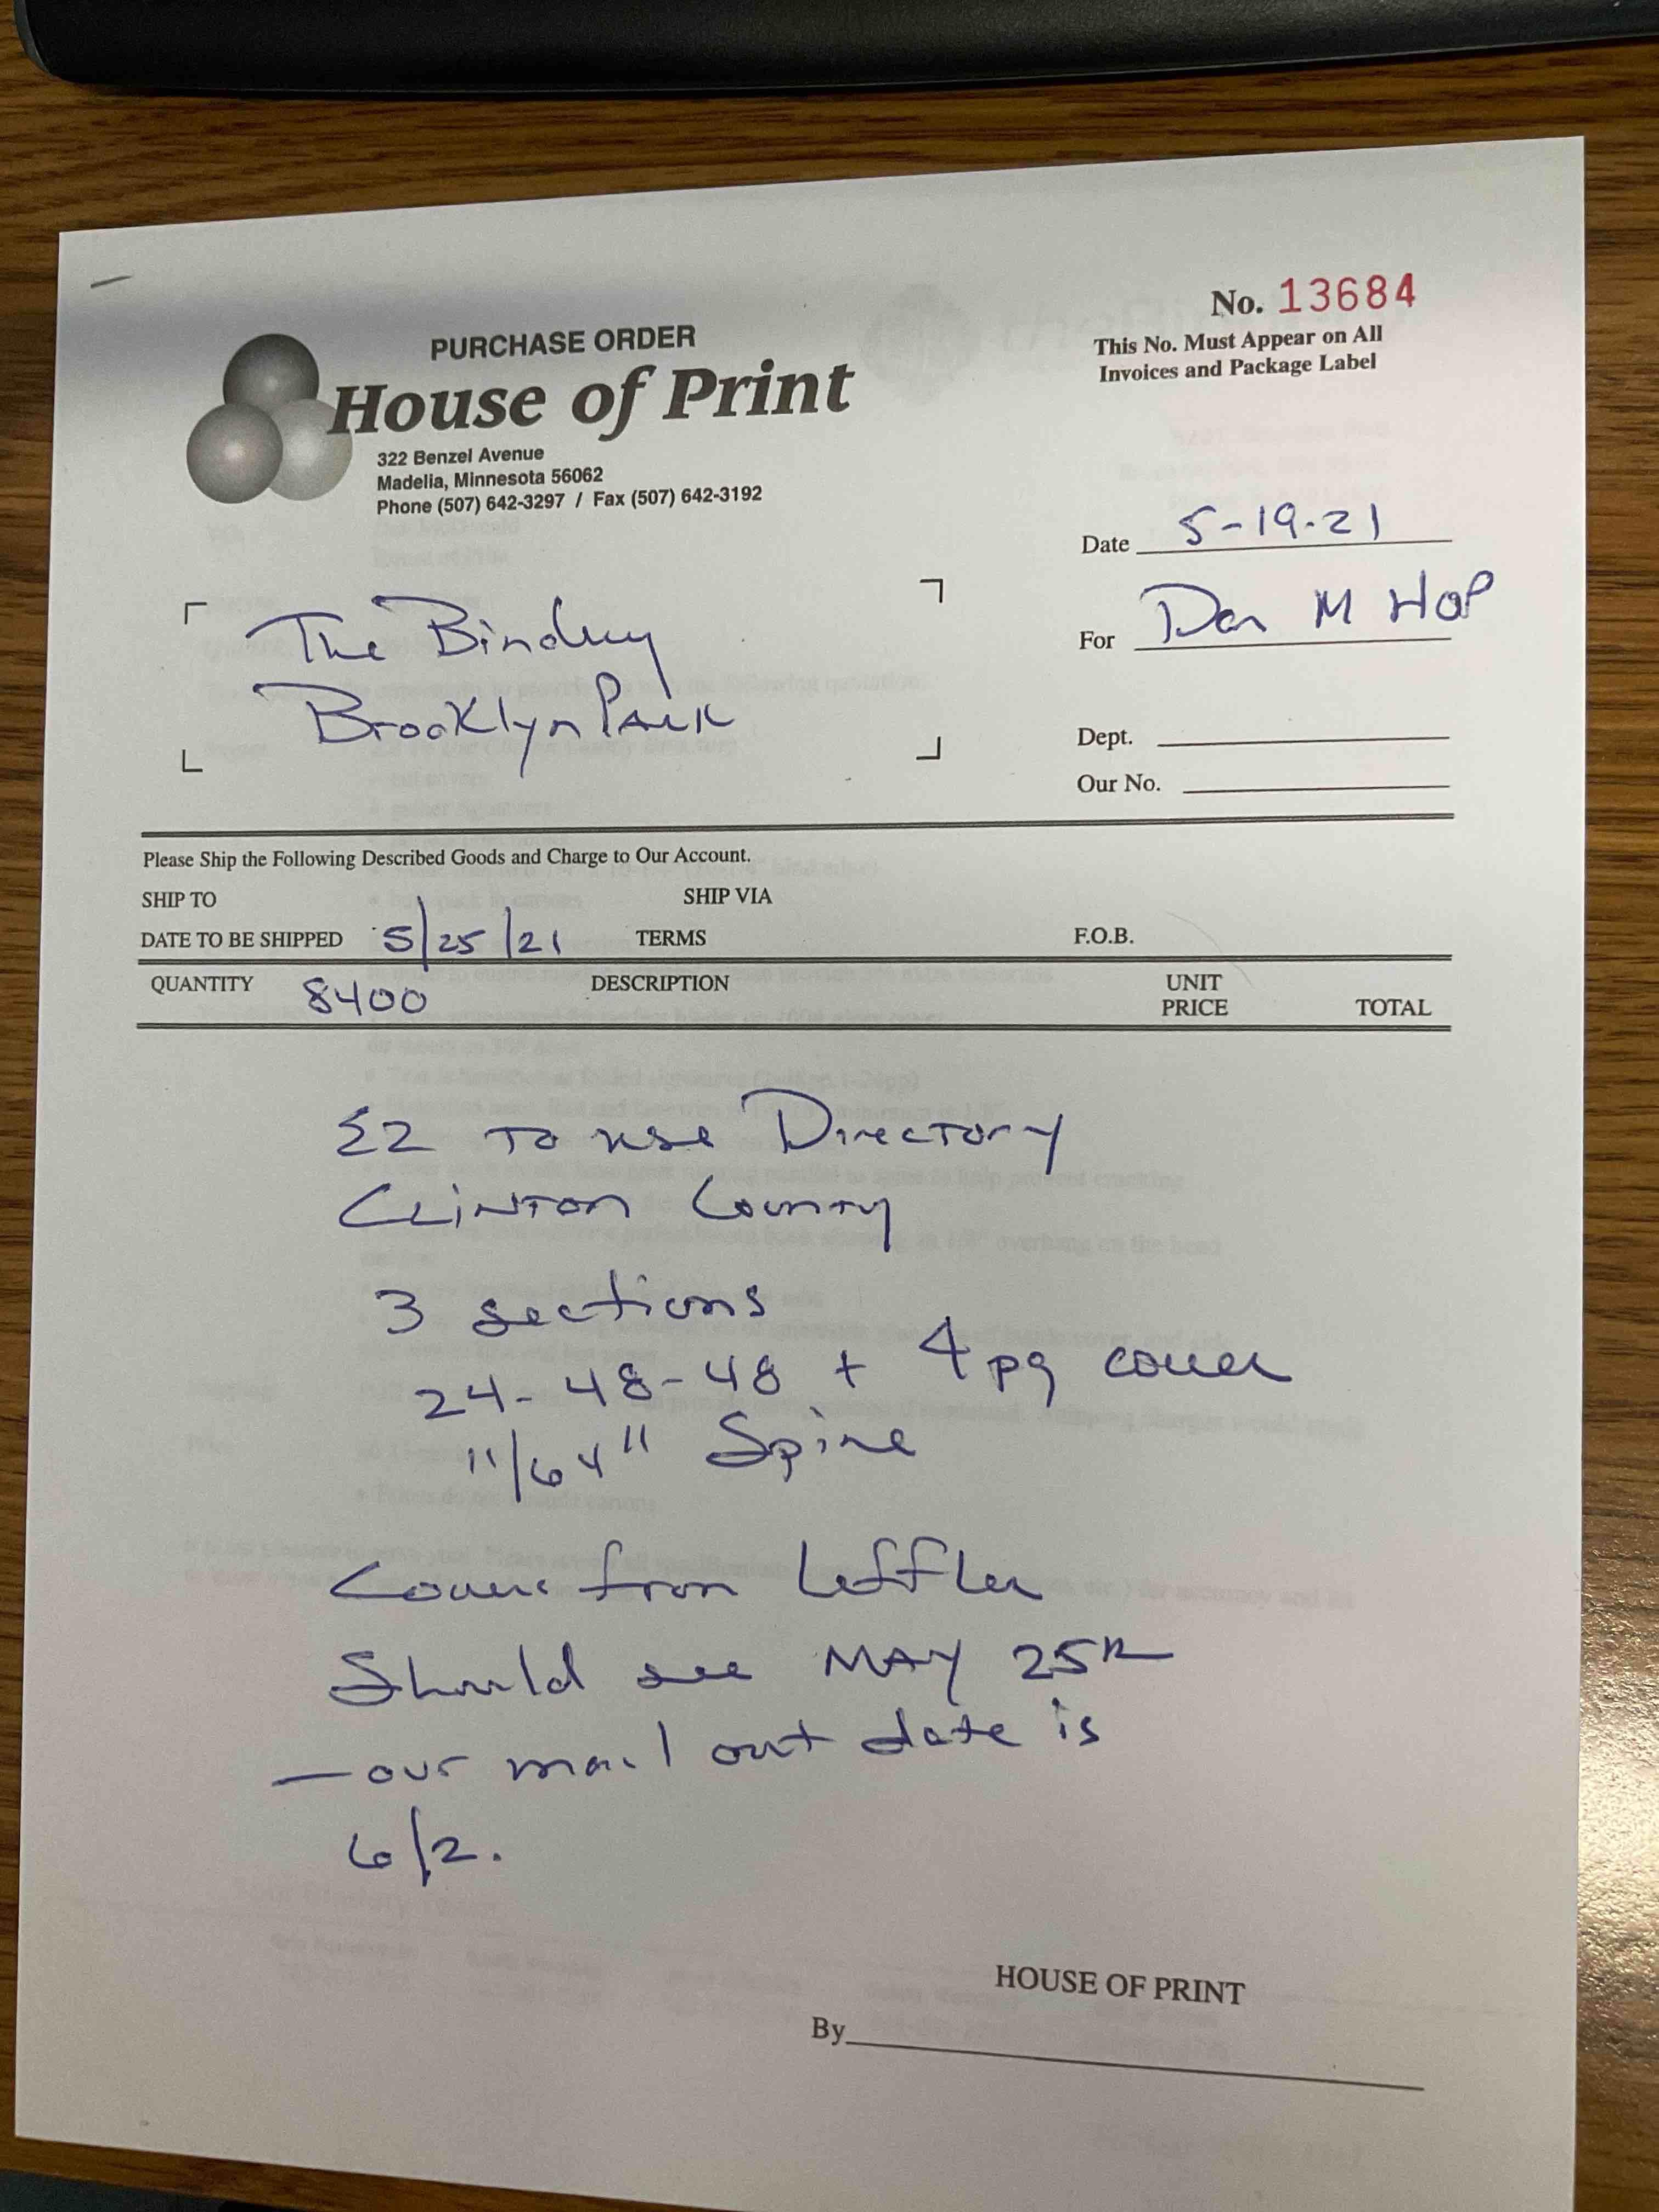 No. 13684
This No. Must Appear on All
Invoices and Package Label
PURCHASE ORDER
House of Print
322 Benzel Avenue
Madelia, Minnesota 56062
Phone (507) 642-3297 / Fax (507) 642-3192
Date 5-19-21
For Dan M HOP
The Bindery
Brooklyn Park
Dept.
Our No.
Please Ship the Following Described Goods and Charge to Our Account.
SHIP TO SHIP VIA
DATE TO BE SHIPPED 5/25/21 TERMS F.O.B.
QUANTITY 8400 DESCRIPTION UNIT PRICE TOTAL
EZ To use Directory
Clinton County
3 sections
24-48-48 + 4 pg cover
11/64" Spine
Covers from Leffler
Should see MAY 25th
- our mail out date is
6/2.
HOUSE OF PRINT
By